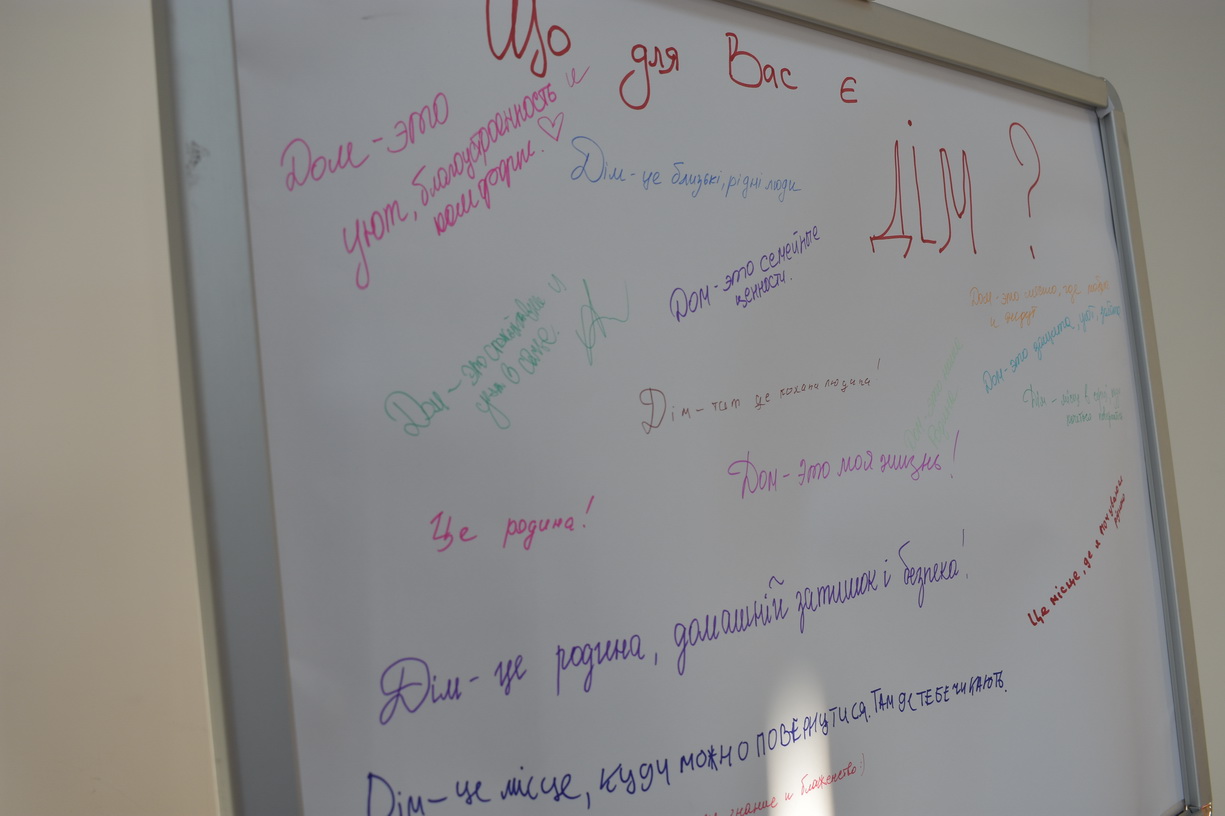 Що для Вас є
ДІМ ?
Дом - это
уют, благоустроенность и
комфорт. ♡
Дім - це близькі, рідні люди
Дом - это семейные
ценности.
Дом - это спокойствие и
уют в семье.
Дом - это место, где
и ждут
Дом - это защита,
Дім - там де кохана людина!
Дом - это моя жизнь!
Це родина!
Це місце, де я
Дім - це родина, домашній затишок і безпека!
Дім - це місце, куди можно повернутися. Там де тебе чикають.
знание и блаженство :)